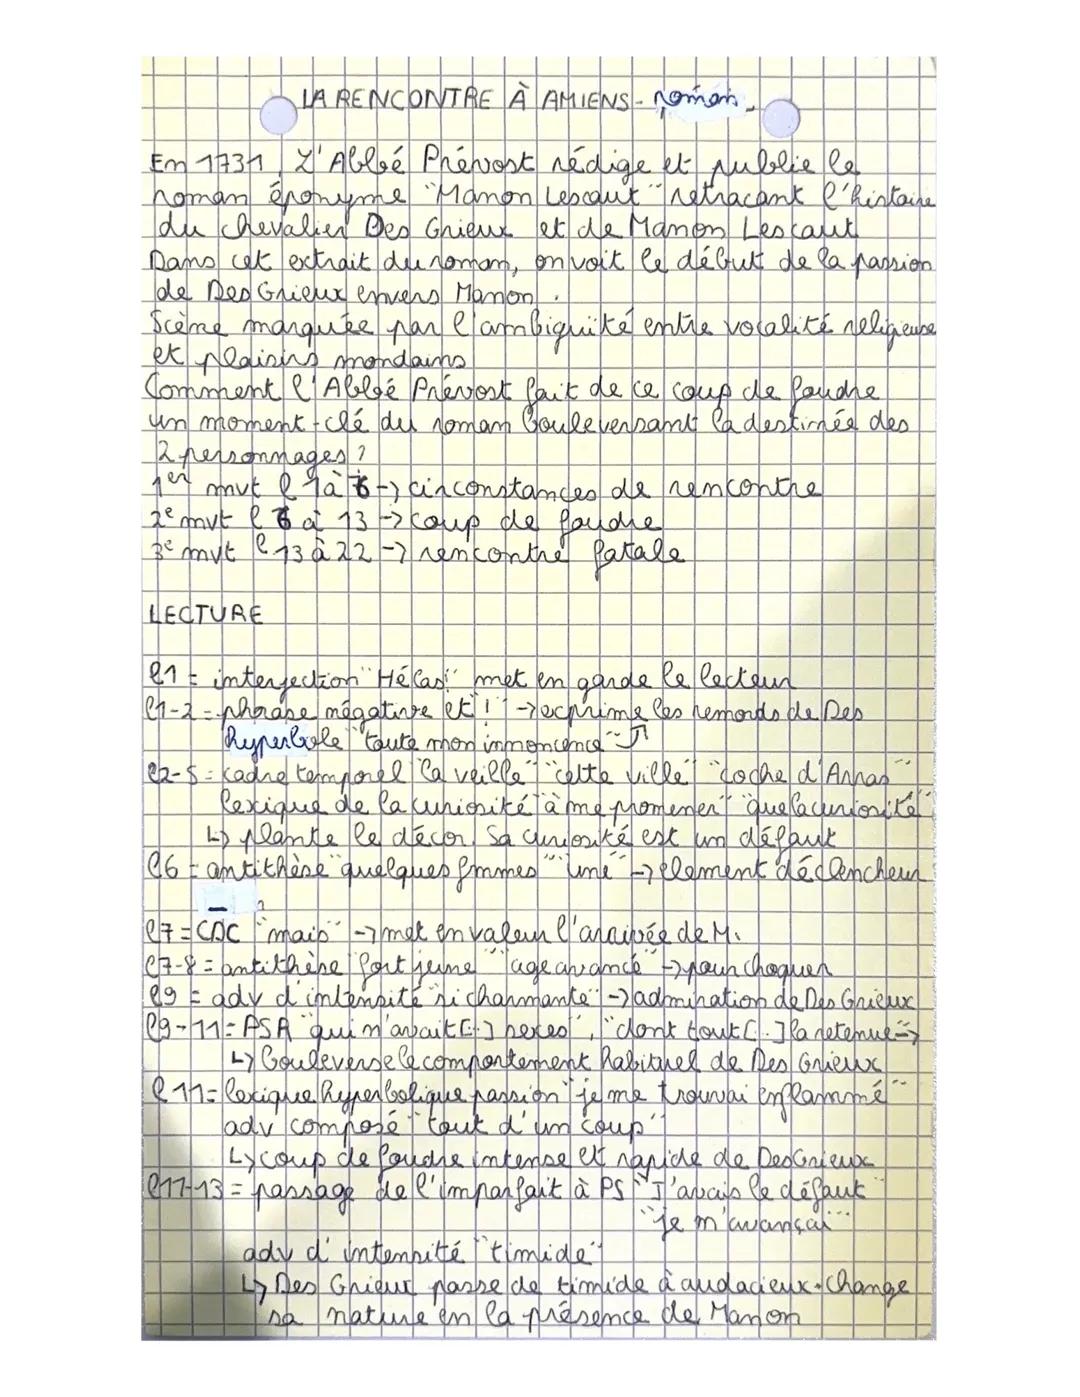 LA RENCONTRE À AMIENS - roman
En 1731, L'Abbé Prévost rédige et publie le
roman éponyme "Manon Lescaut" retraçant l'histoire
du chevalier Des Grieux et de Manon Lescaut.
Dans cet extrait du roman, on voit le début de la passion
de Des Grieux envers Manon.
Scène marquée par l'ambiguïté entre vocalité religieuse
et plaisirs mondains
Comment l'Abbé Prévost fait de ce coup de foudre
un moment-clé du roman bouleversant la destinée des
2 personnages ?
1er mvt l 1 à 6 -> circonstances de rencontre
2e mvt l 6 à 13 -> coup de foudre
3e mvt l 13 à 22 -> rencontre fatale
LECTURE
l1 = interjection "Hélas!" met en garde le lecteur
l1-2 = phrase négative et "!" -> exprime les remords de Des
hyperbole "toute mon innocence"
l2-5 = cadre temporel "la veille" "cette ville" "coche d'Arras"
lexique de la curiosité "à me promener" "que la curiosité"
↳ plante le décor. Sa curiosité est un défaut
l6 = antithèse "quelques femmes" "une" -> element déclencheur
l7 = CDC "mais" -> met en valeur l'arrivée de M.
l7-8 = antithèse "fort jeune" "age avancé" -> pour choquer
l9 = adv d'intensité "si charmante" -> admiration de Des Grieux
l9-11 = PSR "qui n'avait [..] sexes", "dont tout [..] la retenue" ->
↳ bouleverse le comportement habituel de Des Grieux
l 11 = lexique hyperbolique passion "je me trouvai enflammé"
adv composé "tout d'un coup"
↳ coup de foudre intense et rapide de Des Grieux
l11-13 = passage de l'imparfait à PS "J'avais le défaut"
"je m'avançai"
adv d'intensité "timide"
↳ Des Grieux passe de timide à audacieux. Change
sa nature en la présence de Manon